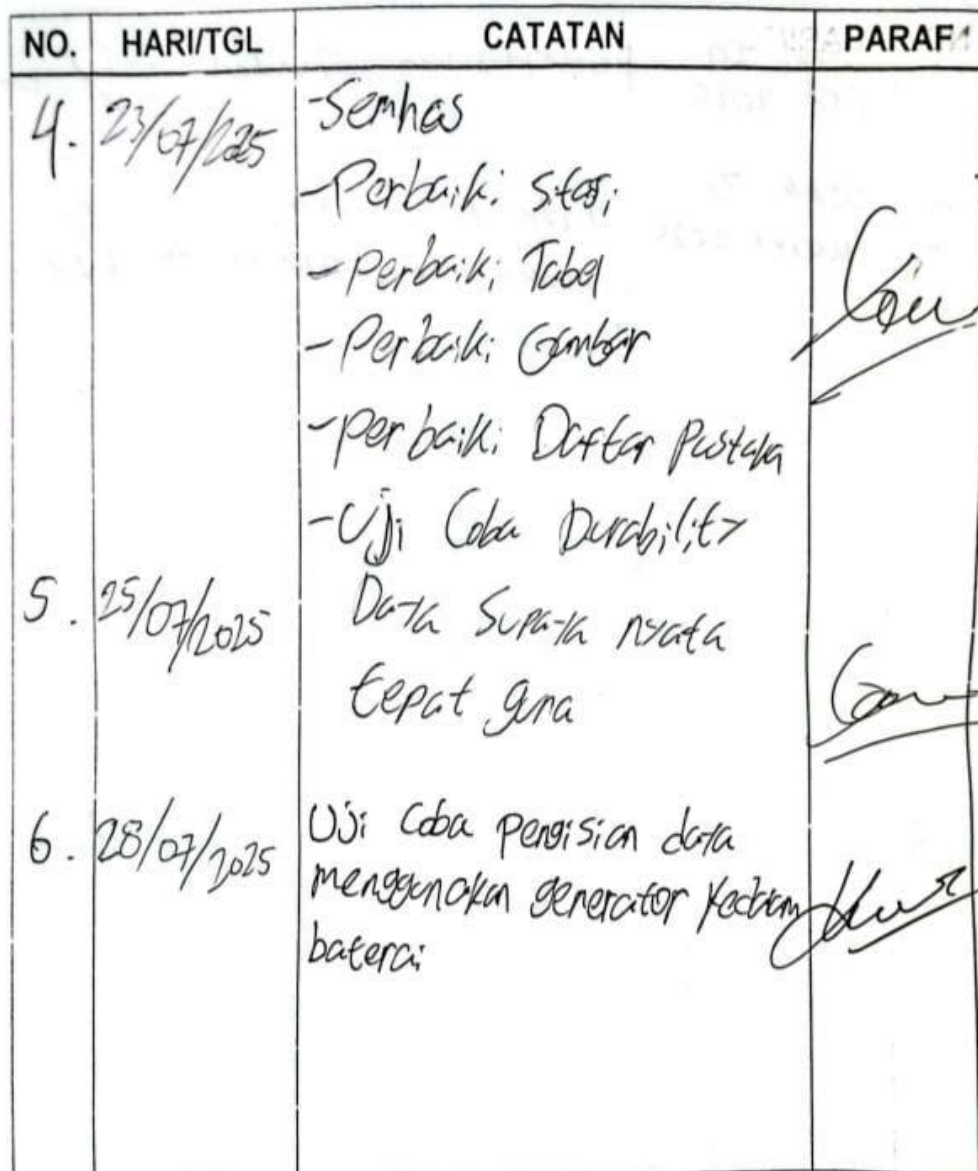 NO. HARI/TGL CATATAN PARAF
4. 23/07/2025 -Semhas
-Perbaiki sitasi
-Perbaiki Tabel
-Perbaiki Gambar
-Perbaiki Daftar Pustaka
-Uji Coba Durability
5. 25/07/2025 Daya Supaya nyata
tepat guna
6. 28/07/2025 Uji Coba pengisian daya
menggunakan generator kedalam
baterai